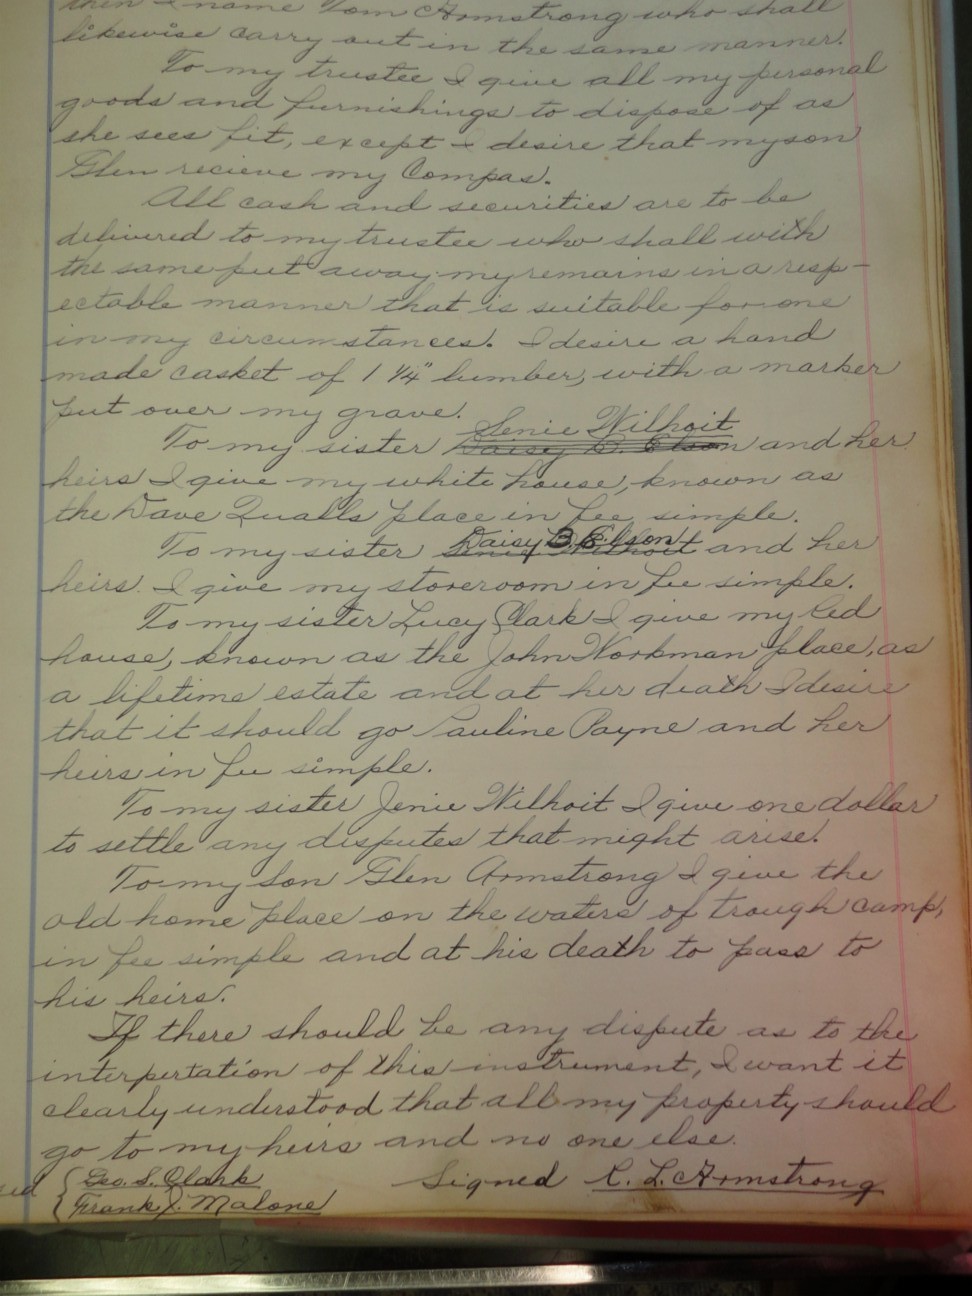 then I name Tom Armstrong who shall
likewise carry out in the same manner.
To my trustee I give all my personal
goods and furnishings to dispose of as
she sees fit, except I desire that my son
Glen recieve my Compas.
All cash and securities are to be
delivered to my trustee who shall with
the same put away my remains in a resp-
ectable manner that is suitable for one
in my circumstances. I desire a hand
made casket of 1 1/4" lumber, with a marker
put over my grave.
Senie Wilhoit
To my sister Daisy B. Elson and her
heirs I give my white house, known as
the Dave Qualls place in fee simple.
Daisy B. Elson
To my sister Senie Wilhoit and her
heirs I give my storeroom in fee simple.
To my sister Lucy Clark I give my Red
house, known as the John Workman place, as
a lifetime estate and at her death I desire
that it should go Pauline Payne and her
heirs in fee simple.
To my sister Jenie Wilhoit I give one dollar
to settle any disputes that might arise.
To my son Glen Armstrong I give the
old home place on the waters of trough camp,
in fee simple and at his death to pass to
his heirs.
If there should be any dispute as to the
interpertation of this instrument, I want it
clearly understood that all my property should
go to my heirs and no one else.
Geo. S. Clark Signed R. L. Armstrong
Frank J. Malone